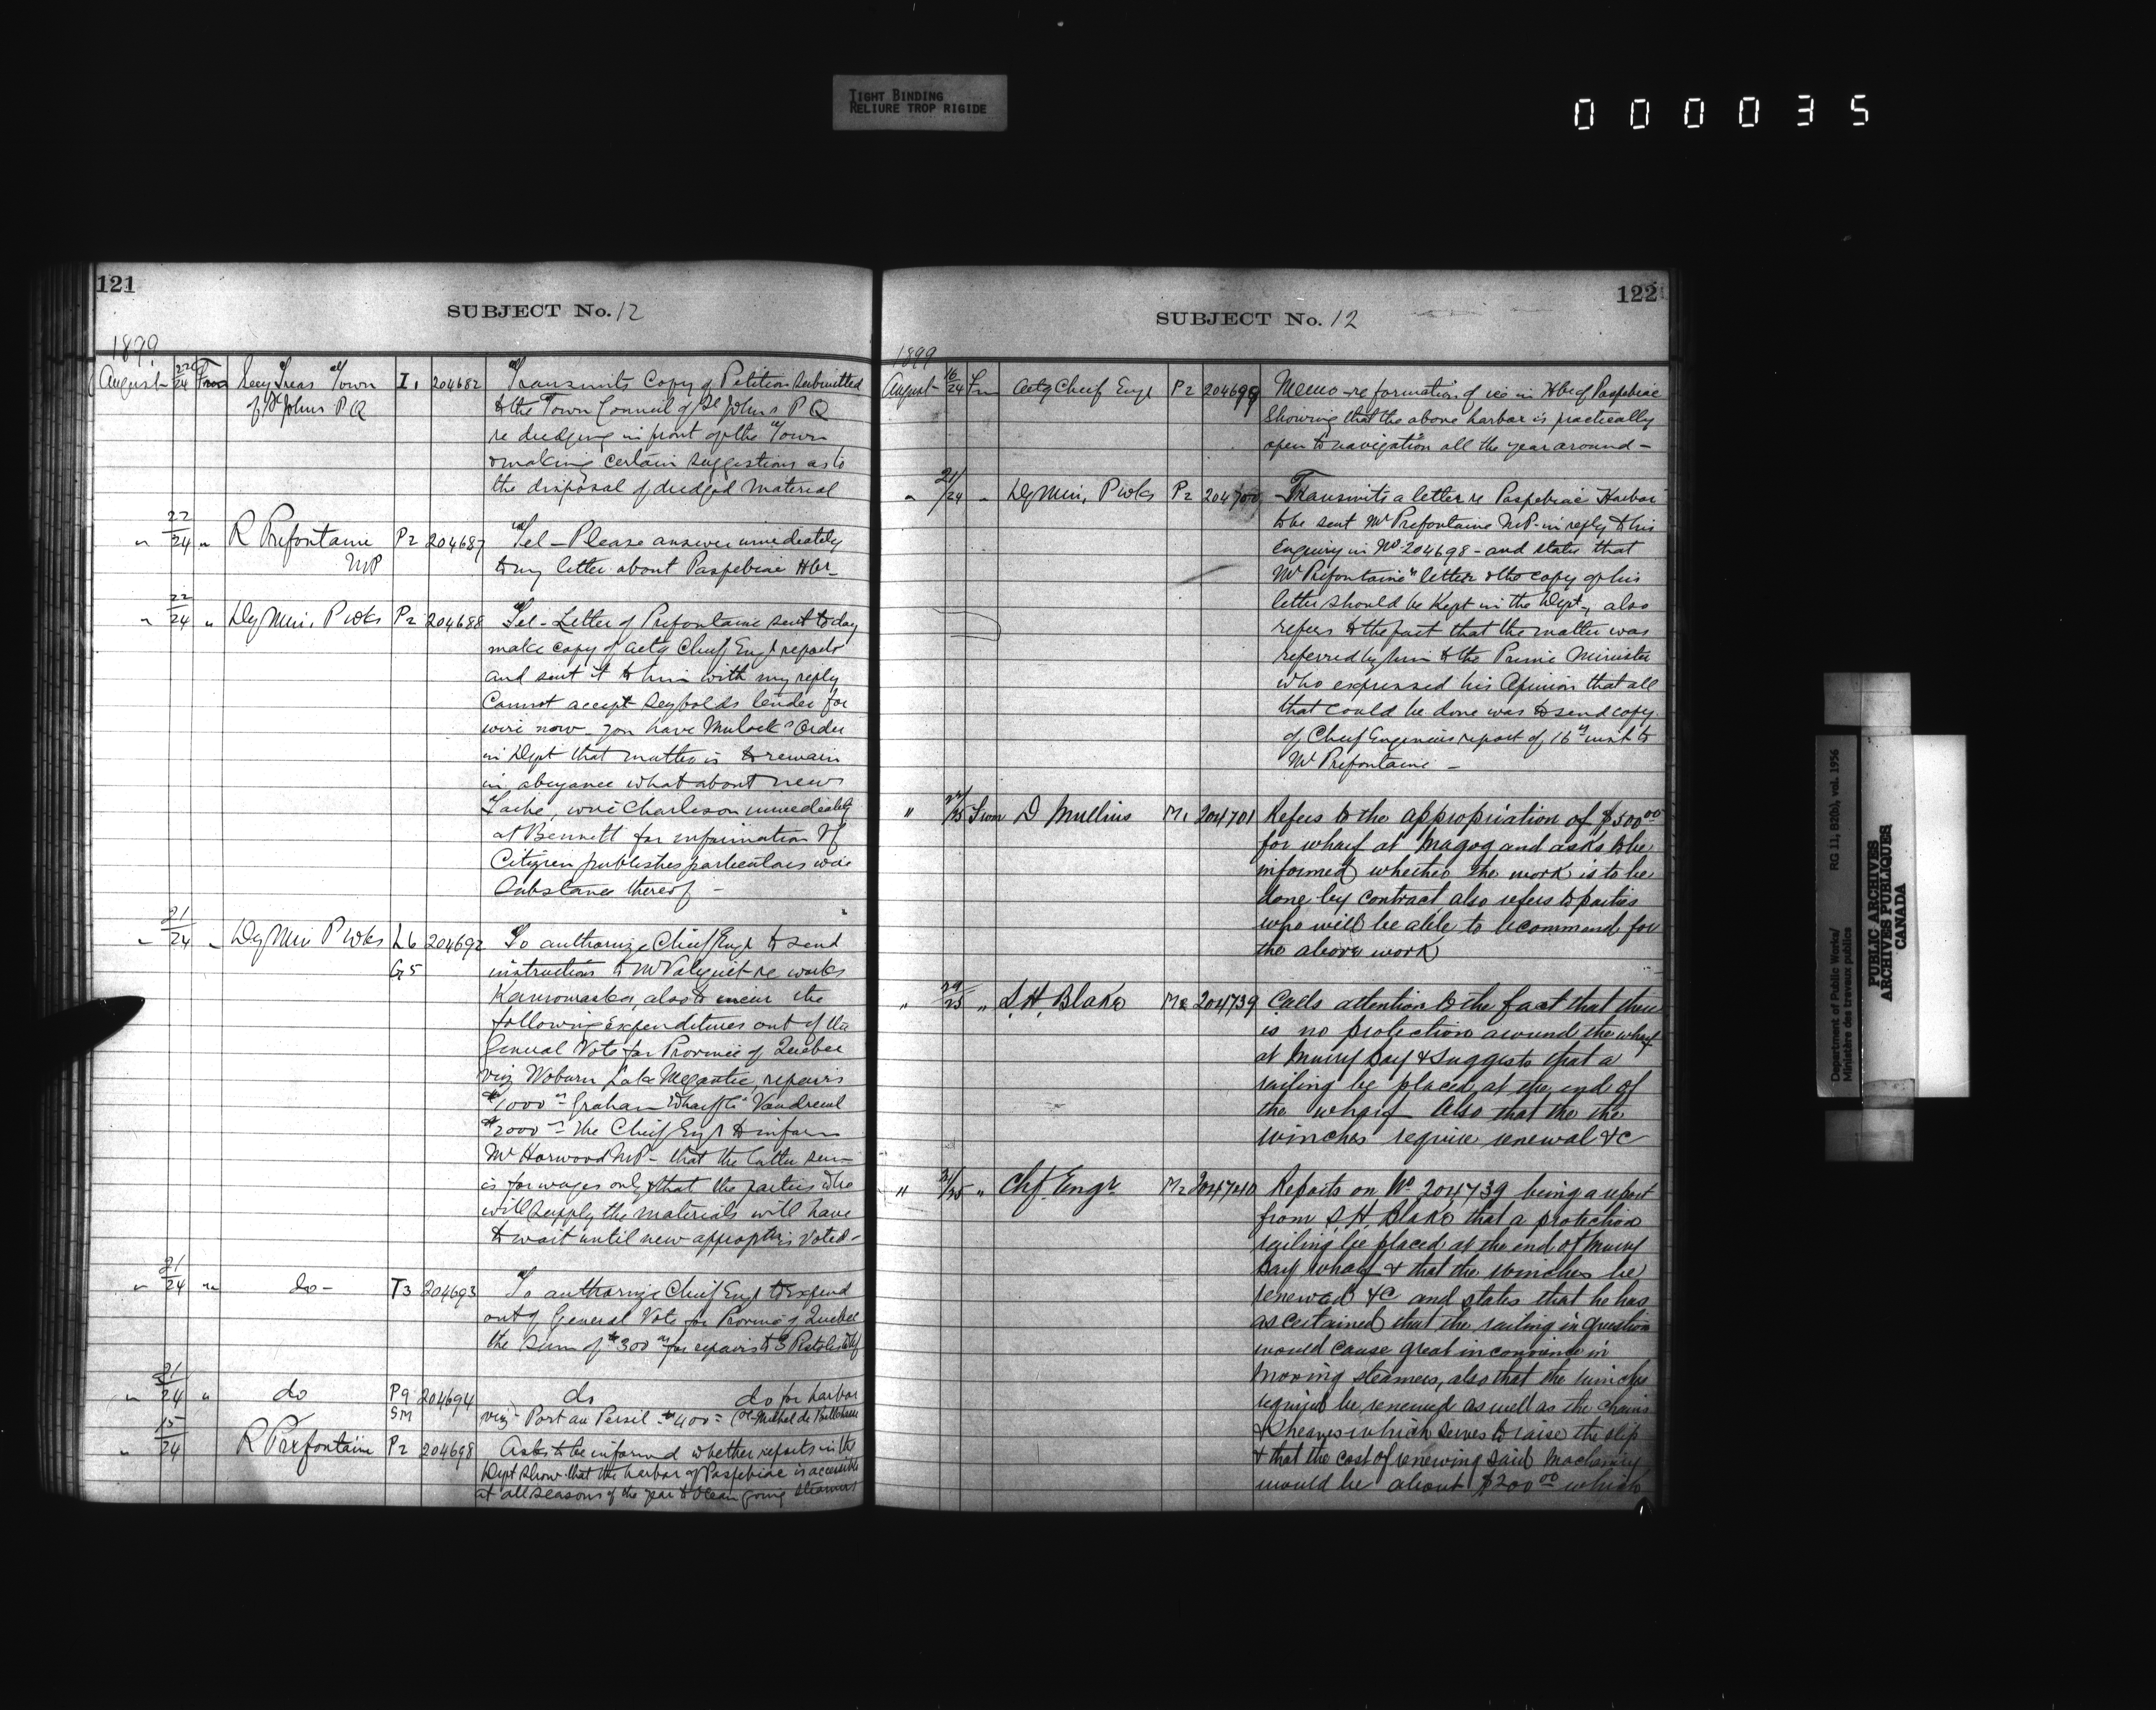 TIGHT BINDING
RELIURE TROP RIGIDE
000035
121
SUBJECT No. 12
1899
August 22/24 From Secy Treas Town I1 204682 Transmits Copy of Petition submitted
of St Johns P Q to the Town Council of St Johns P Q
re dredging in front of the Town
& making certain suggestions as to
the disposal of dredged material
" 22/24 " R Prefontaine P2 204687 Tel - Please answer immediately
MP to my letter about Paspebiac Hbr -
" 22/24 " Dy Min. P Wks P2 204688 Tel - Letter of Prefontaine sent to day
make copy of actg Chief Engr reports
and sent it to him with my reply
Cannot accept Seybolds tender for
wire now you have Mulock's Order
in Dept that matter is to remain
in abeyance what about news
Tache, wire Charleson immediately
at Bennett for information If
Citizen publishes particulars wire
Substance thereof -
" 21/24 " Dy Min P Wks L6 204692 To authorize Chief Engr to send
G5 instructions to Mr Valiquet re works
Kamouraska, also to incur the
following expenditures out of the
General Vote for Province of Quebec
viz Woburn, Lake Megantic, repairs
$1000 - Graham Wharf Vaudreuil
$2000 - The Chief Engr to inform
Mr Harwood MP - that the latter sum
is for wages only & that the parties who
will supply the materials will have
to wait until new approptn is voted -
" 21/24 " do - T3 204693 To authorize Chief Engr to expend
out of General Vote for Province of Quebec
the sum of $300 for repairs to
" 21/24 " do P9 204694 do do for harbor
SM viz - Port au Persil - $400 = St Michel de Bellechasse
" 15/24 R Prefontaine P2 204698 Asks to be informed whether reports in the
Dept show that the harbor of Paspebiac is accessible
at all seasons of the year to Ocean going steamers
122
SUBJECT No. 12
1899
August 16/24 Fm Actg Chief Engr P2 204699 Memo - re formation of ice in Hbr of Paspebiac
Showing that the above harbor is practically
open to navigation all the year around -
" 21/24 " Dy Min, P Wks P2 204700 Transmits a letter re Paspebiac Harbor
to be sent Mr Prefontaine M.P. in reply to his
Enquiry in No 204698 - and states that
Mr Prefontaine's letter & the copy of his
letter should be kept in the Dept, also
refers to the fact that the matter was
referred by him to the Prime Minister
who expressed his Opinion that all
that could be done was to send copy
of Chief Engineers report of 16th inst to
Mr Prefontaine -
" 22/25 From D Mullins M1 204701 Refers to the appropriation of $500.00
for wharf at Magog and asks to be
informed whether the work is to be
done by contract also refers to parties
who will be able to recommend for
the above work
" 24/25 " S. H. Blake M2 204739 Calls attention to the fact that there
is no protection around the wharf
at Murray Bay & suggests that a
railing be placed at the end of
the wharf Also that the the
winches require renewal &c
" 31/25 " Chf. Engr. M2 204740 Reports on No 204739 being a report
from S. H. Blake that a protection
railing be placed at the end of Murray
Bay wharf & that the winches be
renewed &c and states that he has
ascertained that the railing in question
would cause great inconvience in
moving steamers, also that the winches
required be renewed as well as the chains
& sheaves which serves to raise the slip
& that the cost of renewing said machinery
would be about $200.00 which
Department of Public Works/
Ministère des travaux publics
RG 11, B2(b), vol. 1956
PUBLIC ARCHIVES
ARCHIVES PUBLIQUES
CANADA